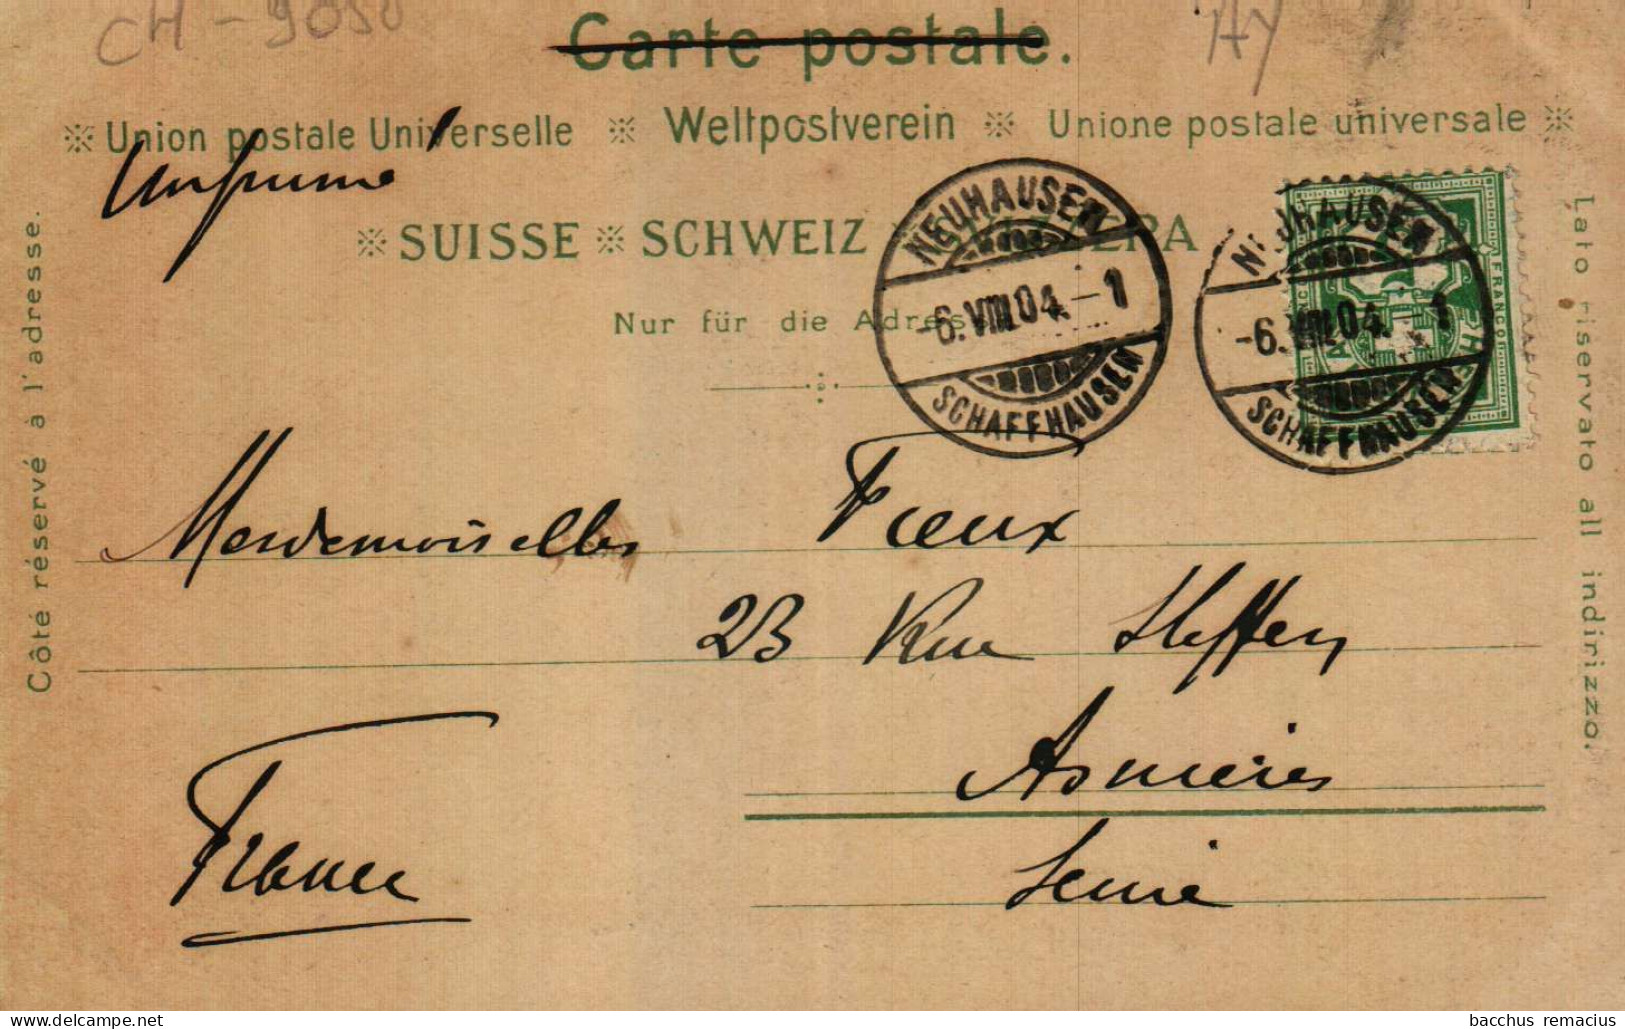 CH - 9050
Carte postale.
Union postale Universelle ※ Weltpostverein ※ Unione postale universale
Imprimé
SUISSE ※ SCHWEIZ
Nur für die Adres
NEUHAUSEN
-6.VIII.04.-1
SCHAFFHAUSEN
NEUHAUSEN
-6.VIII.04.-1
SCHAFFHAUSEN
FRANCO
Côté réservé à l'adresse.
Lato riservato all indirizzo.
Mesdemoiselles
23 Rue Steffen
Asnières
Seine
France
bacchus remacius